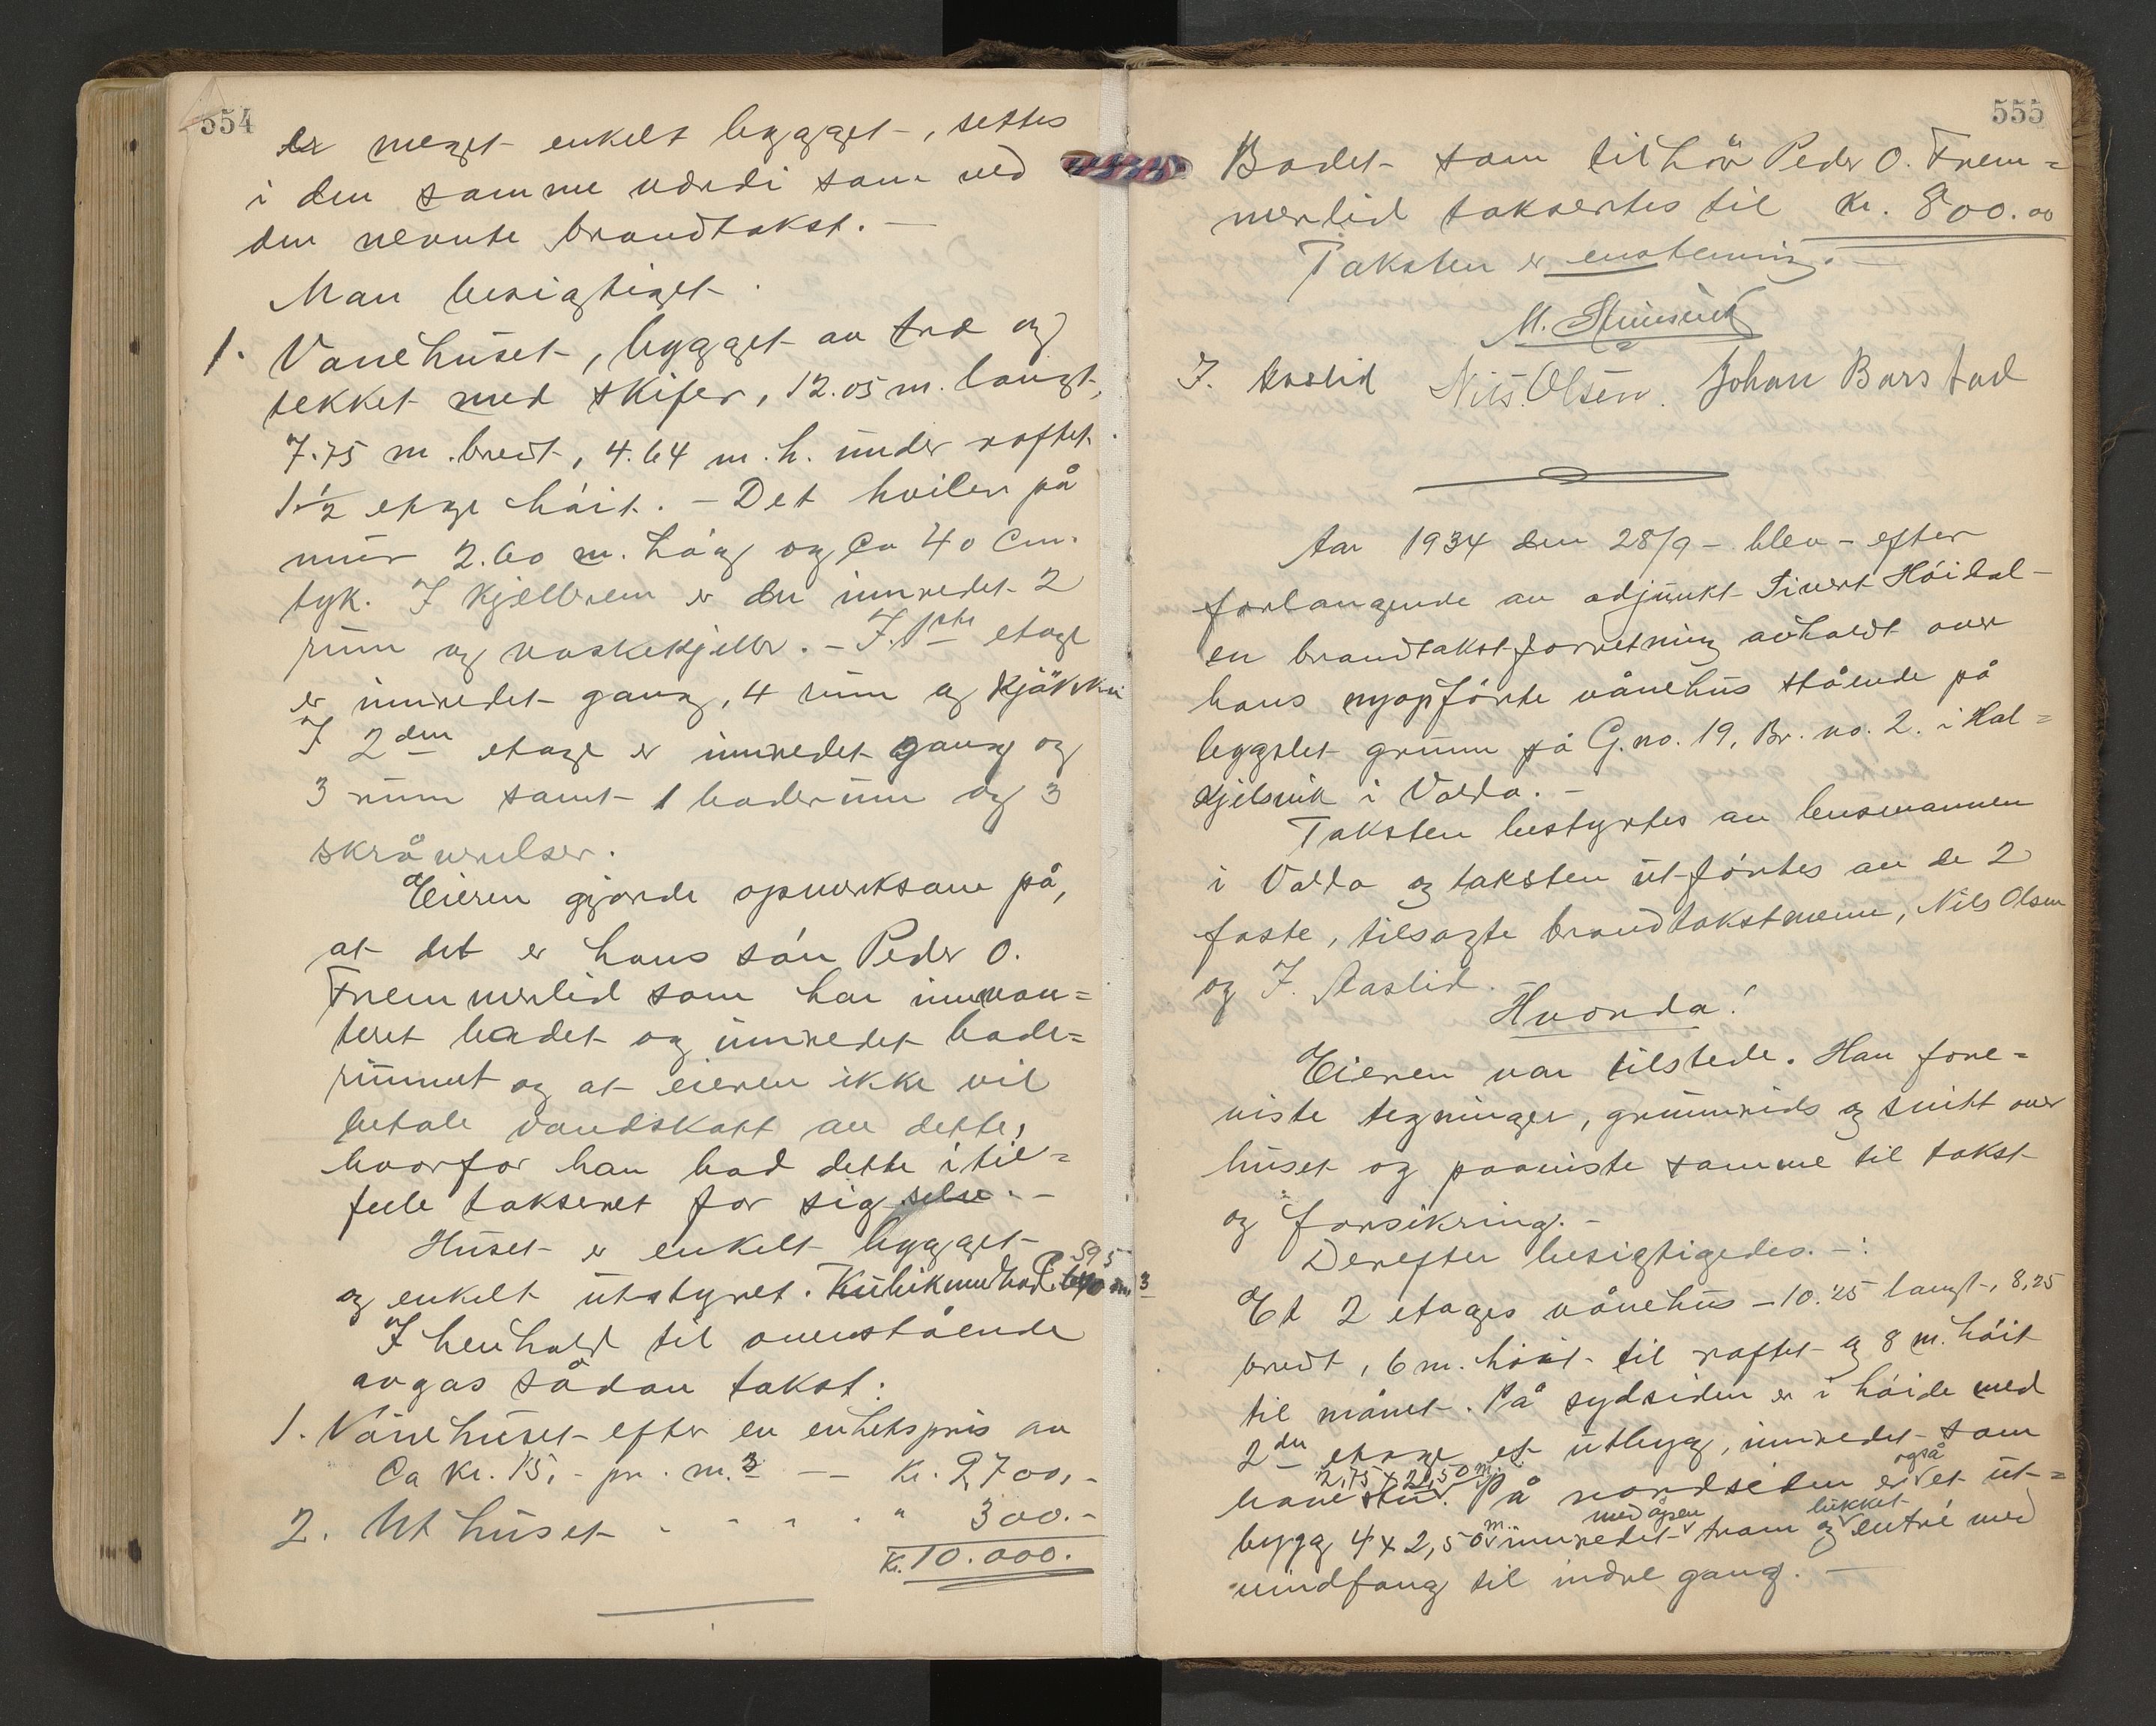 554
er meget enkelt bygget, settes
i den samme værdi som ved
den nevnte brandtakst. -
Man besigtiget.
1. Vånehuset, bygget av træ og
tekket med skifer, 12.05 m. langt,
7.75 m. bredt, 4.64 m. h. under raftet
1 1/2 etage høit. - Det hviler på
mur 2.60 m. høg og ca 40 cm.
tyk. I kjelleren er der innredet 2
rum og vaskekjeller. - I 1ste etage
er innredet gang, 4 rum og kjøkken
I 2den etage er innredet gang og
3 rum samt 1 baderum og 3
skråværelser.
Eieren gjorde opmerksom på,
at det er hans søn Peder O.
Fremmerlid som har innmon=
teret badet og innredet bade=
rummet og at eieren ikke vil
betale vandskatt av dette,
hvorfor han bad dette i til=
felle takseret for sig selv. -
Huset er enkelt bygget
og enkelt utstyret. Kubikinnhod. 595 m3
I henhold til ovenstående
avgas sådan takst:
1. Vånehuset efter en enhetspris av
Ca kr. 15,- pr. m.3 -- kr. 9700,-
2. Uthuset - - - - " 300.-
Kr. 10.000.
555
Badet som tilhør Peder O. Frem=
merlid taksertes til kr. 800.00
Taksten er enstemmig. -
M.
I. Aaslid Nils Olsen. Johan Barstad
Aar 1934 den 28/9 - blev - efter
forlangende av adjunkt Sivert Høidal -
en brandtakstforretning avholdt over
hans nyopførte vånehus stående på
bygslet grunn på G. no. 19, Br. no. 2. i Hal=
kjelsvik i Volda. -
Taksten bestyrtes av lensmannen
i Volda og taksten utførtes av de 2
faste, tilsagte brandtakstmenn, Nils Olsen
og I. Aaslid.
Hvorda!
Eieren var tilstede. Han fore=
viste tegninger, grunnrids og snitt over
huset og paaviste samme til takst
og forsikring. -
Derefter besigtigedes. -:
Et 2 etages vånehus - 10.25 langt, 8,25
bredt, 6 m. høit til raftet og 8 m. høit
til mønet. På sydsiden er i høide med
2den etage et utbygg, innredet som
2,75 x 2,50 m.
havestu. På nordsiden er også et ut=
bygg 4 x 2,50 m. innredet med åpen tram og lukket entré med
vindfang til indre gang. -